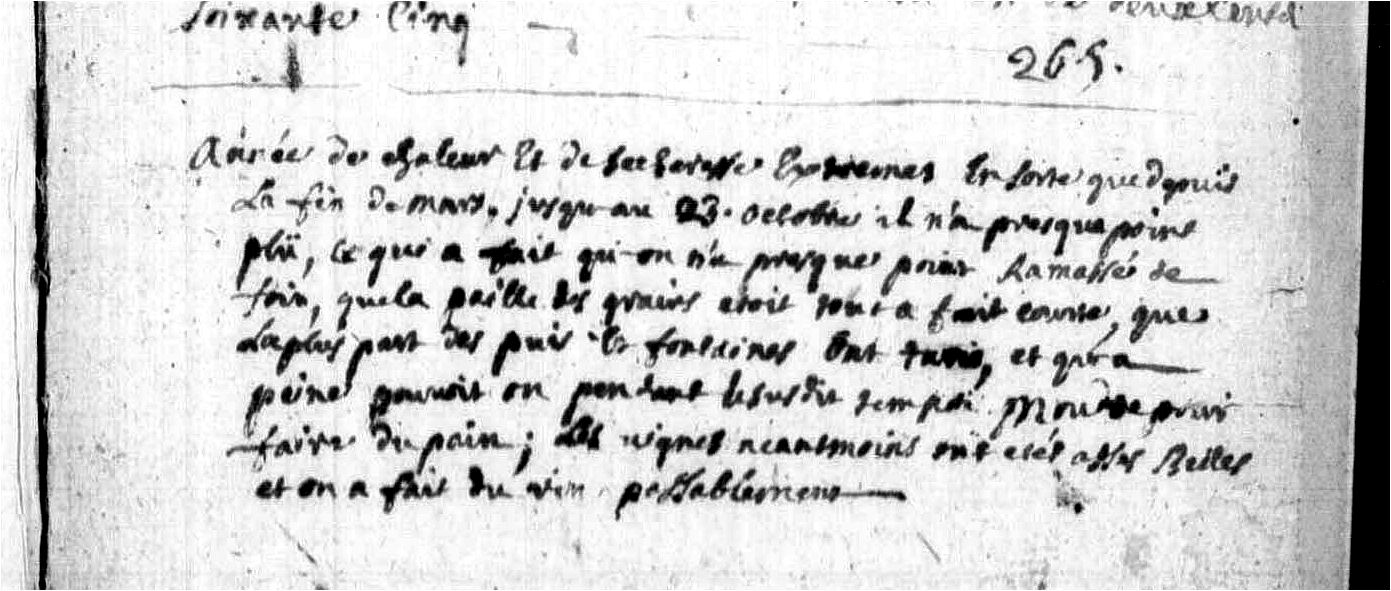 soixante Cinq
265.
Année de chaleur Et de secheresse Extremes En sorte que depuis
La fin de mars, jusqu-au 23. octobre il n'a presque point
plü, ce qui a fait qu-on n'a presque point Ramassé de
foin, que la paille des grains etoit tout a fait courte, que
La plus part des puis Et fontaines Ont taris, et qu'a
peine pouvoit on pendant le susdit temps Moudre pour
faire du pain; Les vignes neantmoins ont etés assés Belles
et on a fait du vin passablement